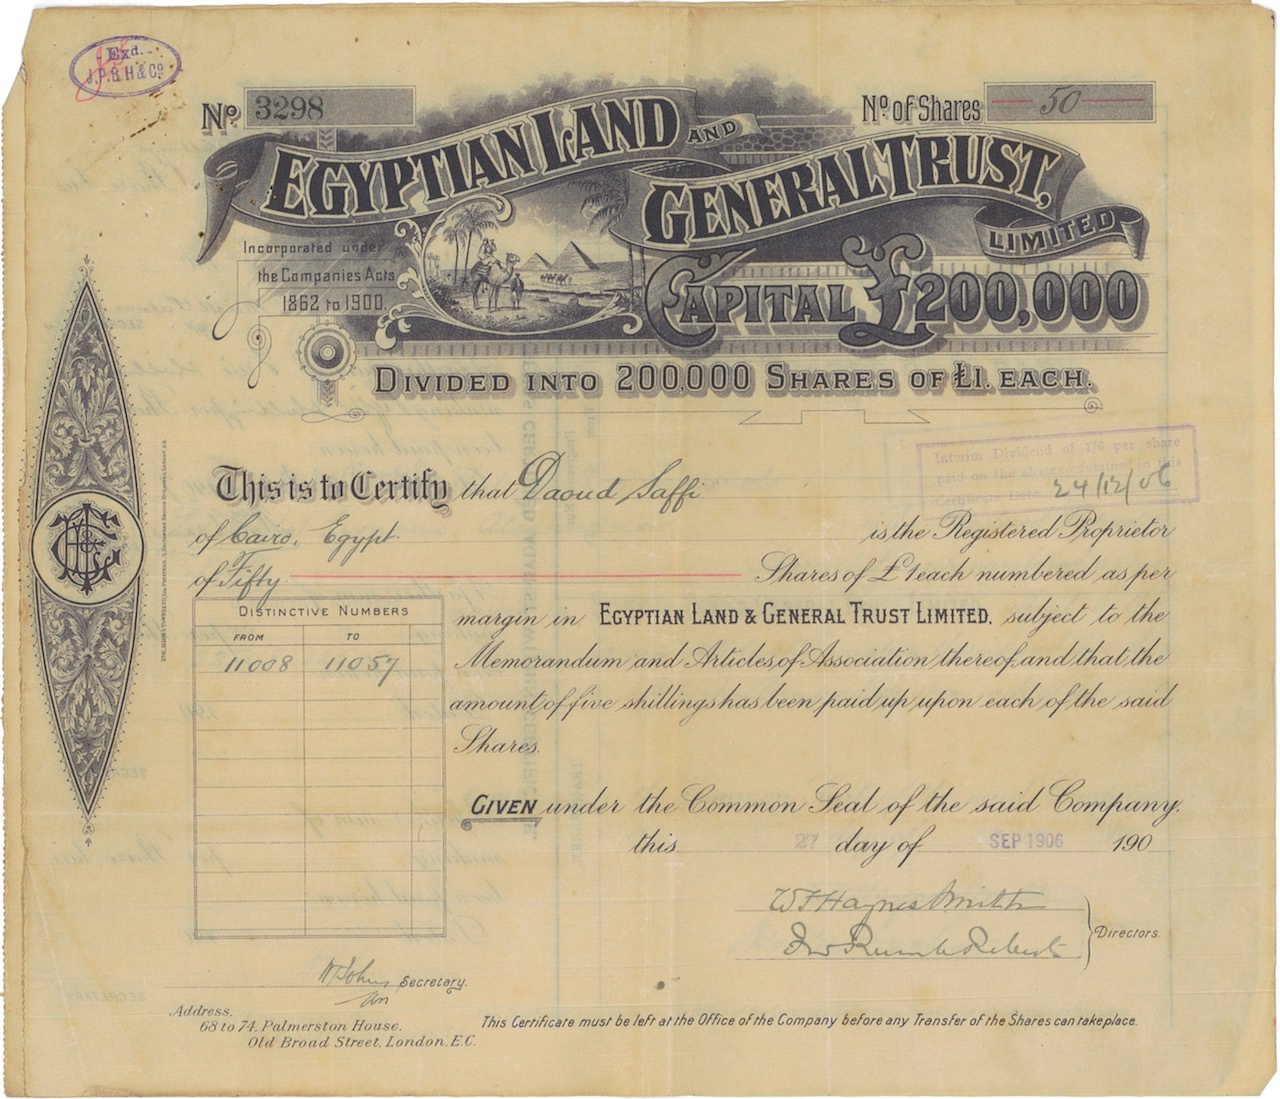 Exd.
J.P.B.H & Co
No. 3298
No. of Shares 50
EGYPTIAN LAND AND
GENERAL TRUST,
LIMITED
Incorporated under
the Companies Acts
1862 to 1900.
CAPITAL £200,000
DIVIDED INTO 200,000 SHARES OF £1. EACH.
Interim Dividend of 1/6 per share
paid on the shares contained in this
Certificate Date 24/12/06
This is to Certify that Daoud Saffi
of Cairo, Egypt. is the Registered Proprietor
of Fifty Shares of £1 each numbered as per
DISTINCTIVE NUMBERS
FROM TO
11008 11057
margin in EGYPTIAN LAND & GENERAL TRUST LIMITED, subject to the
Memorandum and Articles of Association thereof, and that the
amount of five shillings has been paid up upon each of the said
Shares.
GIVEN under the Common Seal of the said Company,
this 27 day of SEP 1906 190
W F Haynes Smith
Directors.
Secretary.
Address,
68 to 74, Palmerston House,
Old Broad Street, London, E.C.
This Certificate must be left at the Office of the Company before any Transfer of the Shares can take place.